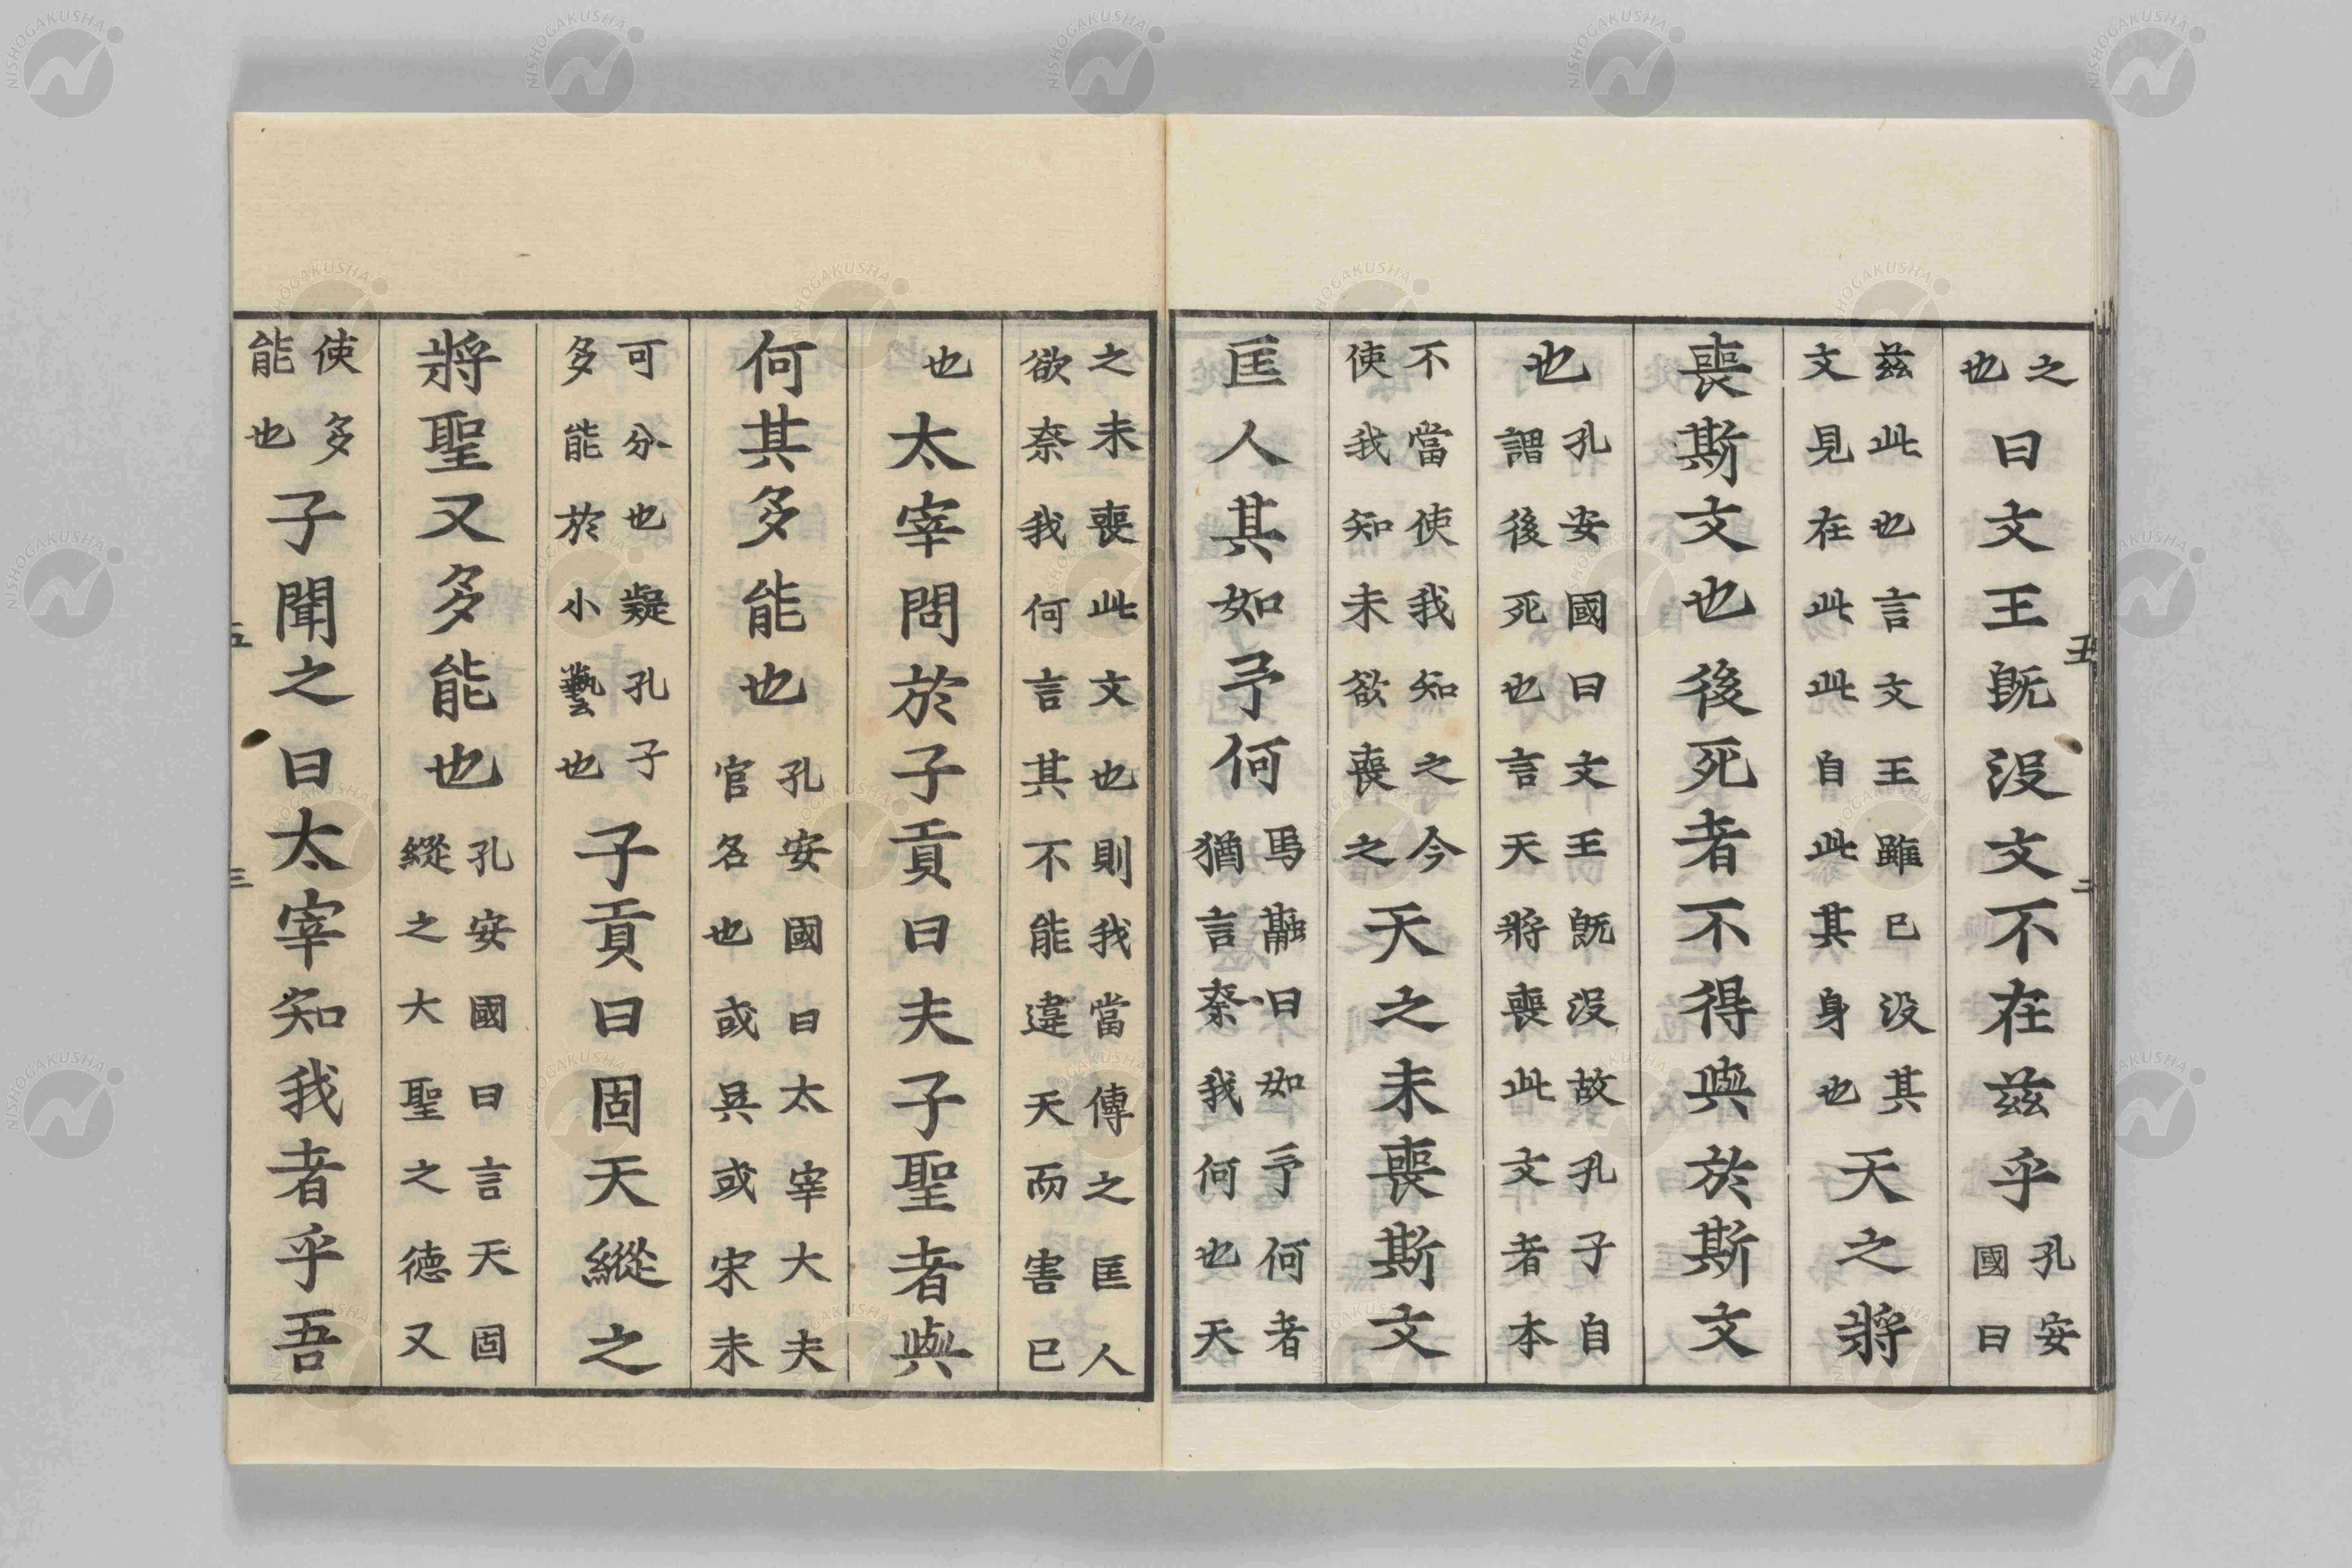 之也曰文王既没文不在兹乎孔安國曰
兹此也言文王雖已没其文見在此此自此其身也天之將
喪斯文也後死者不得與於斯文
也孔安國曰文王既没故孔子自謂後死也言天將喪此文者本
不當使我知之今使我知未欲喪之天之未喪斯文
匡人其如予何馬融曰如予何者猶言奈我何也天
之未喪此文也則我當傳之匡人欲奈我何言其不能違天而害已
也太宰問於子貢曰夫子聖者與
何其多能也孔安國曰太宰大夫官名也或吳或宋未
可分也疑孔子多能於小藝也子貢曰固天縱之
將聖又多能也孔安國曰言天固縱之大聖之德又
使多能也子聞之曰太宰知我者乎吾
五
三
NISHOGAKUSHA